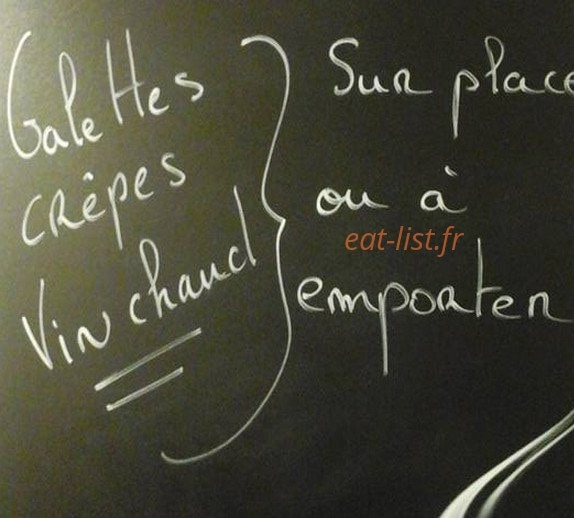 Galettes
crêpes
Vin chaud
Sur place
ou à
eat-list.fr
emporter